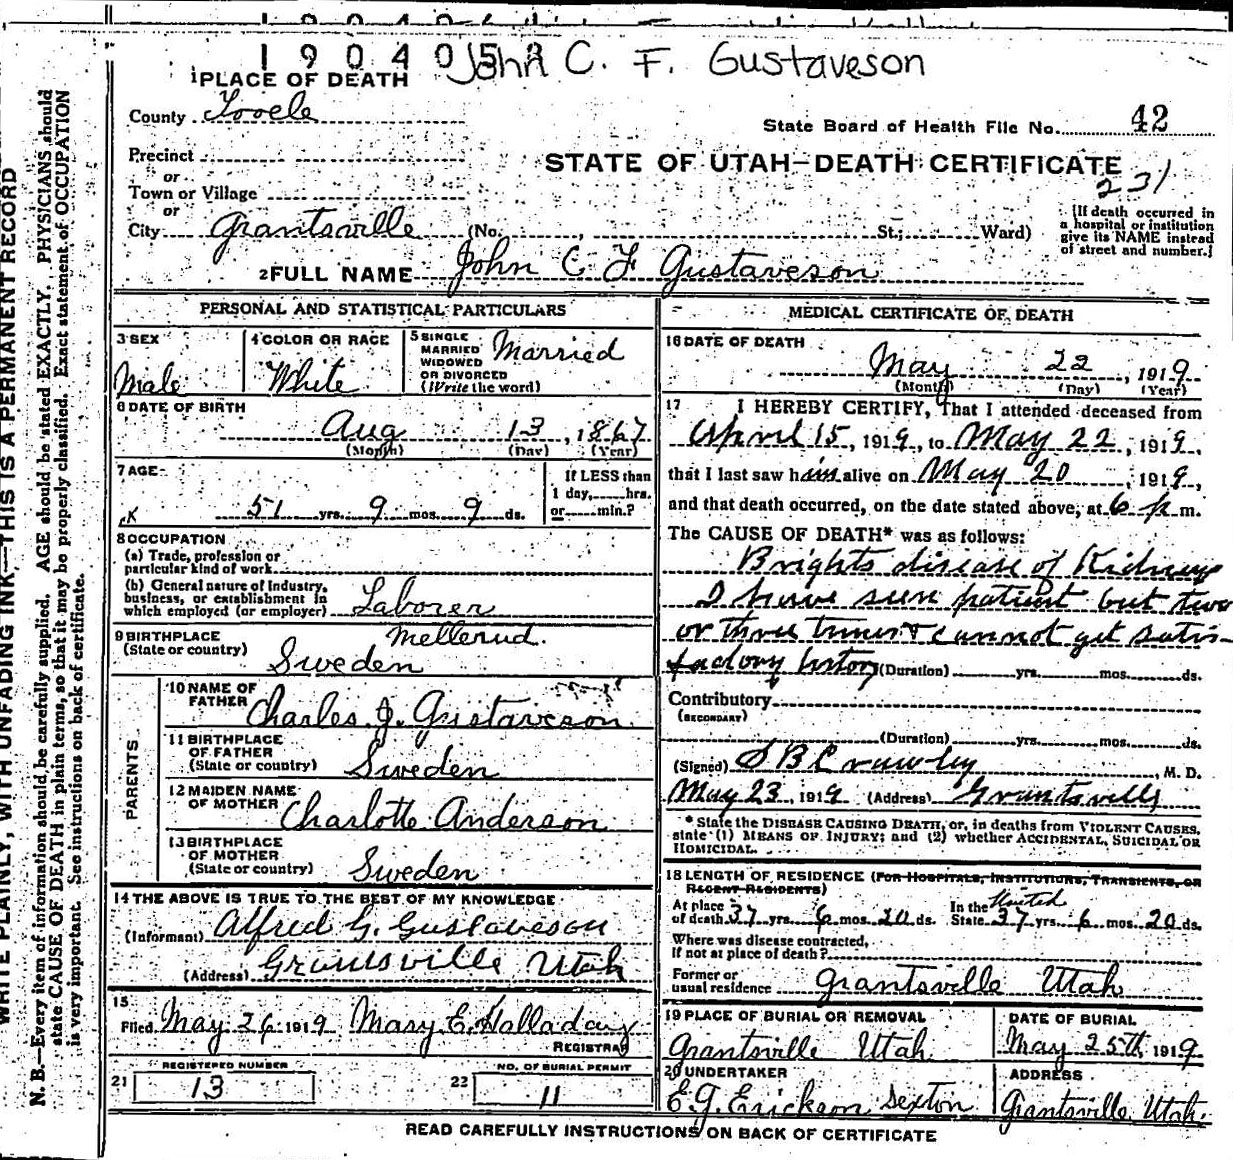 1904052
John C. F. Gustaveson
1 PLACE OF DEATH
County Tooele
State Board of Health File No. 42
Precinct
or
STATE OF UTAH—DEATH CERTIFICATE
231
Town or Village
or
City Grantsville (No. , St.; Ward)
[If death occurred in
a hospital or institution
give its NAME instead
of street and number.]
2 FULL NAME John C F Gustaveson
PERSONAL AND STATISTICAL PARTICULARS
3 SEX
Male
4 COLOR OR RACE
White
5 SINGLE
MARRIED
WIDOWED
OR DIVORCED
(Write the word)
Married
6 DATE OF BIRTH
Aug 13, 1867
(Month) (Day) (Year)
7 AGE
51 yrs. 9 mos. 9 ds.
If LESS than
1 day, hrs.
or min.?
8 OCCUPATION
(a) Trade, profession or
particular kind of work
(b) General nature of Industry,
business, or establishment in
which employed (or employer) Laborer
9 BIRTHPLACE
(State or country)
Mellerud.
Sweden
PARENTS
10 NAME OF
FATHER Charles J. Gustaveson
11 BIRTHPLACE
OF FATHER
(State or country) Sweden
12 MAIDEN NAME
OF MOTHER Charlotte Anderson
13 BIRTHPLACE
OF MOTHER
(State or country) Sweden
14 THE ABOVE IS TRUE TO THE BEST OF MY KNOWLEDGE
(Informant) Alfred G. Gustaveson
(Address) Grantsville Utah
15
Filed May 26 1919 Mary E. Halladay
REGISTRAR
REGISTERED NUMBER
21 13
NO. OF BURIAL PERMIT
22 11
MEDICAL CERTIFICATE OF DEATH
16 DATE OF DEATH
May 22, 1919
(Month) (Day) (Year)
17 I HEREBY CERTIFY, That I attended deceased from
April 15, 1919, to May 22, 1919,
that I last saw him alive on May 20, 1919,
and that death occurred, on the date stated above, at 6 p m.
The CAUSE OF DEATH* was as follows:
Brights disease of Kidneys
I have seen patient but two
or three times & cannot get satis-
factory history (Duration) yrs. mos. ds.
Contributory
(SECONDARY)
(Duration) yrs. mos. ds.
(Signed) S B Crawley, M. D.
May 23, 1919 (Address) Grantsville
* State the DISEASE CAUSING DEATH, or, in deaths from VIOLENT CAUSES,
state (1) MEANS OF INJURY; and (2) whether ACCIDENTAL, SUICIDAL OR
HOMICIDAL.
18 LENGTH OF RESIDENCE (FOR HOSPITALS, INSTITUTIONS, TRANSIENTS, OR
RECENT RESIDENTS)
At place
of death 37 yrs. 6 mos. 20 ds. In the United
State 37 yrs. 6 mos. 20 ds.
Where was disease contracted,
if not at place of death?
Former or
usual residence Grantsville Utah
19 PLACE OF BURIAL OR REMOVAL
Grantsville Utah
DATE OF BURIAL
May 25th 1919
20 UNDERTAKER
E. G. Erickson Sexton
ADDRESS
Grantsville, Utah.
READ CAREFULLY INSTRUCTIONS ON BACK OF CERTIFICATE
WRITE PLAINLY, WITH UNFADING INK—THIS IS A PERMANENT RECORD
N. B.—Every item of information should be carefully supplied. AGE should be stated EXACTLY. PHYSICIANS should
state CAUSE OF DEATH in plain terms, so that it may be properly classified. Exact statement of OCCUPATION
is very important. See instructions on back of certificate.